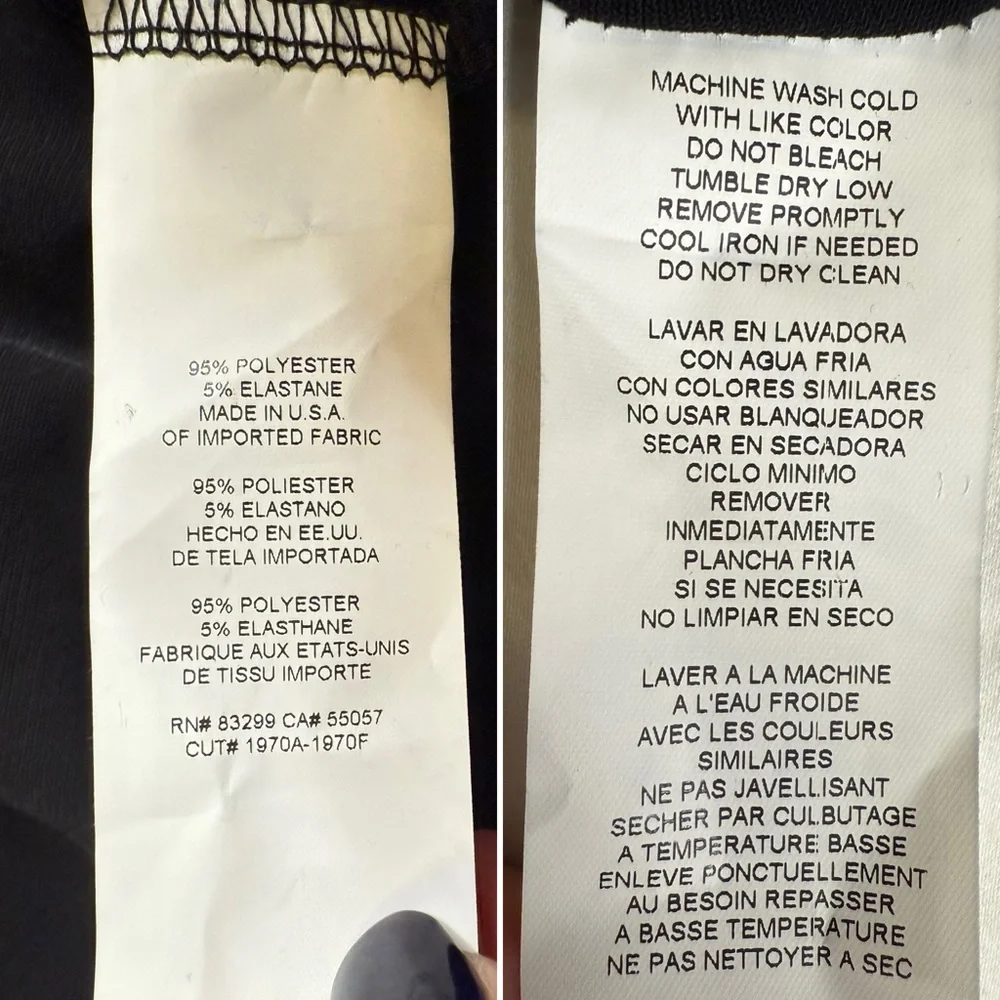 95% POLYESTER
5% ELASTANE
MADE IN U.S.A.
OF IMPORTED FABRIC
95% POLIESTER
5% ELASTANO
HECHO EN EE.UU.
DE TELA IMPORTADA
95% POLYESTER
5% ELASTHANE
FABRIQUE AUX ETATS-UNIS
DE TISSU IMPORTE
RN# 83299 CA# 55057
CUT# 1970A-1970F
MACHINE WASH COLD
WITH LIKE COLOR
DO NOT BLEACH
TUMBLE DRY LOW
REMOVE PROMPTLY
COOL IRON IF NEEDED
DO NOT DRY CLEAN
LAVAR EN LAVADORA
CON AGUA FRIA
CON COLORES SIMILARES
NO USAR BLANQUEADOR
SECAR EN SECADORA
CICLO MINIMO
REMOVER
INMEDIATAMENTE
PLANCHA FRIA
SI SE NECESITA
NO LIMPIAR EN SECO
LAVER A LA MACHINE
A L'EAU FROIDE
AVEC LES COULEURS
SIMILAIRES
NE PAS JAVELLISANT
SECHER PAR CULBUTAGE
A TEMPERATURE BASSE
ENLEVE PONCTUELLEMENT
AU BESOIN REPASSER
A BASSE TEMPERATURE
NE PAS NETTOYER A SEC